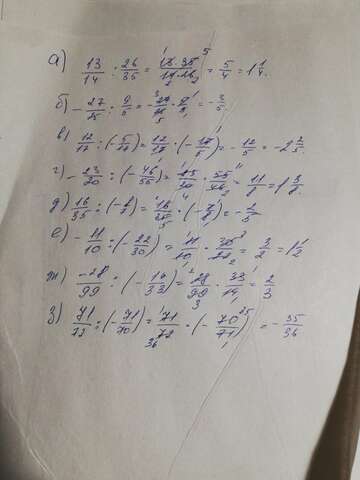 а) 13/14 : 26/35 = 13·35/14·26 = 5/4 = 1 1/4.
б) -27/25 : 9/5 = -27/25 · 5/9 = -3/5.
в) 12/17 : (-5/17) = 12/17 · (-17/5) = -12/5 = -2 2/5.
г) -23/20 : (-46/55) = 23/20 · 55/46 = 11/8 = 1 3/8.
д) 16/35 : (-8/7) = 16/35 · (-7/8) = -2/5
е) -11/10 : (-22/30) = 11/10 · 30/22 = 3/2 = 1 1/2
ж) -28/99 : (-14/33) = 28/99 · 33/14 = 2/3
з) 71/72 : (-71/70) = 71/72 · (-70/71) = -35/36